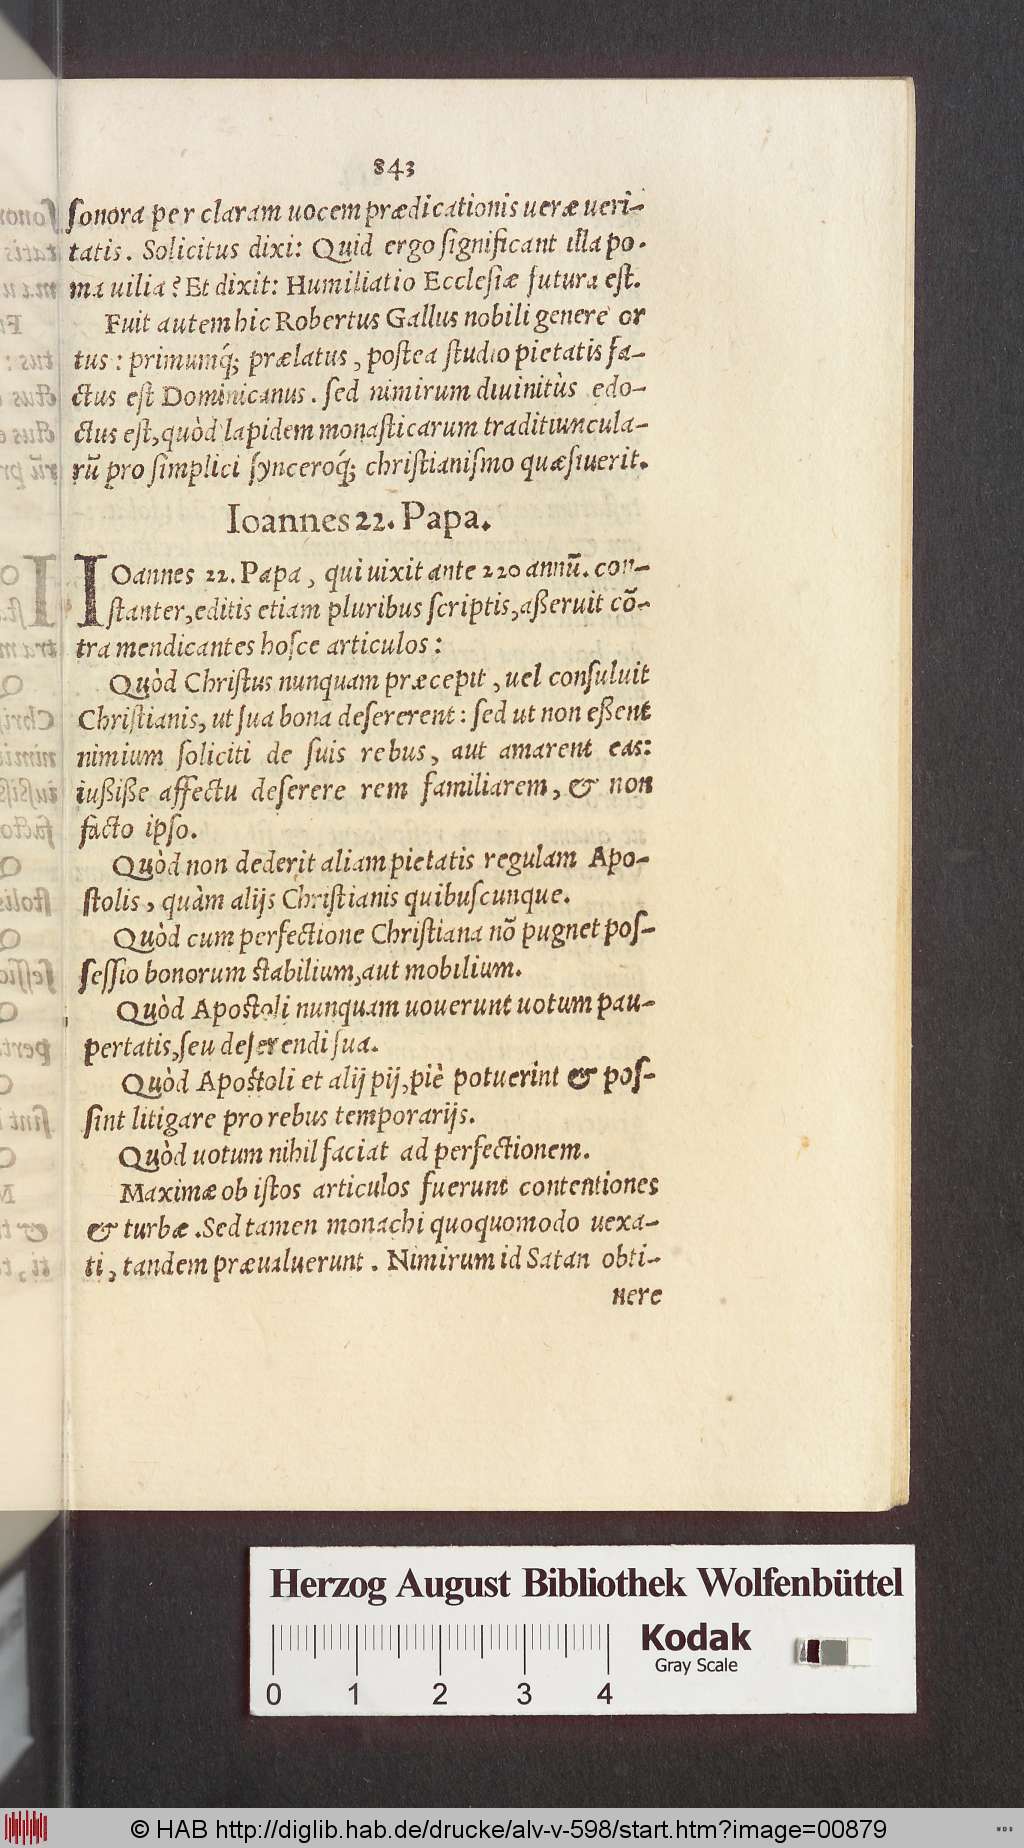 843
ſonora per claram uocem prædicationis ueræ ueri-
tatis. Solicitus dixi: Quid ergo ſignificant illa po-
ma uilia? Et dixit: Humiliatio Eccleſiæ futura eſt.
Fuit autem hic Robertus Gallus nobili genere or
tus: primumq́; prælatus, poſtea ſtudio pietatis fa-
ctus eſt Dominicanus. ſed nimirum diuinitùs edo-
ctus eſt, quòd lapidem monaſticarum traditiuncula-
rũ pro ſimplici ſynceroq́; chriſtianiſmo quæſiuerit.
Ioannes 22. Papa.
IOannes 22. Papa, qui uixit ante 220 annũ. con-
ſtanter, editis etiam pluribus ſcriptis, aßeruit cõ-
tra mendicantes hoſce articulos:
Quòd Chriſtus nunquam præcepit, uel conſuluit
Chriſtianis, ut ſua bona deſererent: ſed ut non eßent
nimium ſoliciti de ſuis rebus, aut amarent eas:
iußiße affectu deſerere rem familiarem, & non
facto ipſo.
Quòd non dederit aliam pietatis regulam Apo-
ſtolis, quàm alijs Chriſtianis quibuſcunque.
Quòd cum perfectione Chriſtiana nõ pugnet poſ-
ſeſſio bonorum ſtabilium, aut mobilium.
Quòd Apoſtoli nunquam uouerunt uotum pau-
pertatis, ſeu deſerendi ſua.
Quòd Apoſtoli et alij pij, piè potuerint & poſ-
ſint litigare pro rebus temporarijs.
Quòd uotum nihil faciat ad perfectionem.
Maximæ ob iſtos articulos fuerunt contentiones
& turbæ. Sed tamen monachi quoquomodo uexa-
ti, tandem præualuerunt. Nimirum id Satan obti-
nere
Herzog August Bibliothek Wolfenbüttel
Kodak
Gray Scale
0 1 2 3 4
© HAB http://diglib.hab.de/drucke/alv-v-598/start.htm?image=00879